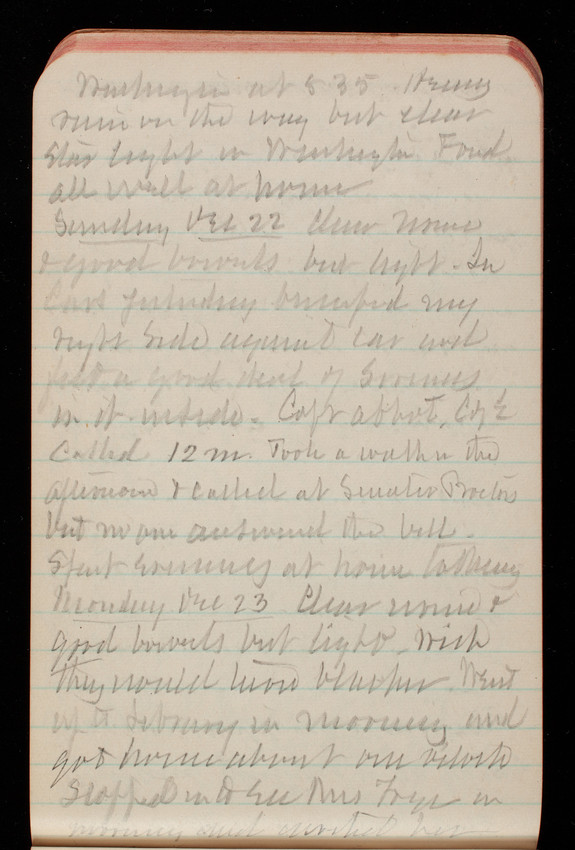 Washington at 8 35. Heavy
rain on the way but clear
Star light in Washington. Found
all well at home
Sunday Dec 22 Clear
& good bowels but light. In
Cars yesterday bumped my
right side against car and
felt a good deal of Soreness
in it inside. Capt Abbot, C of E
Called 12 m. Took a walk in the
afternoon & called at Senator Proctors
but no one answered the bell.
Spent evening at home
Monday Dec 23 Clear &
good bowels but light. Wish
they would move. Went
up to Library in morning and
got home about one oclock
Stopped in to See Mrs in
morning and her